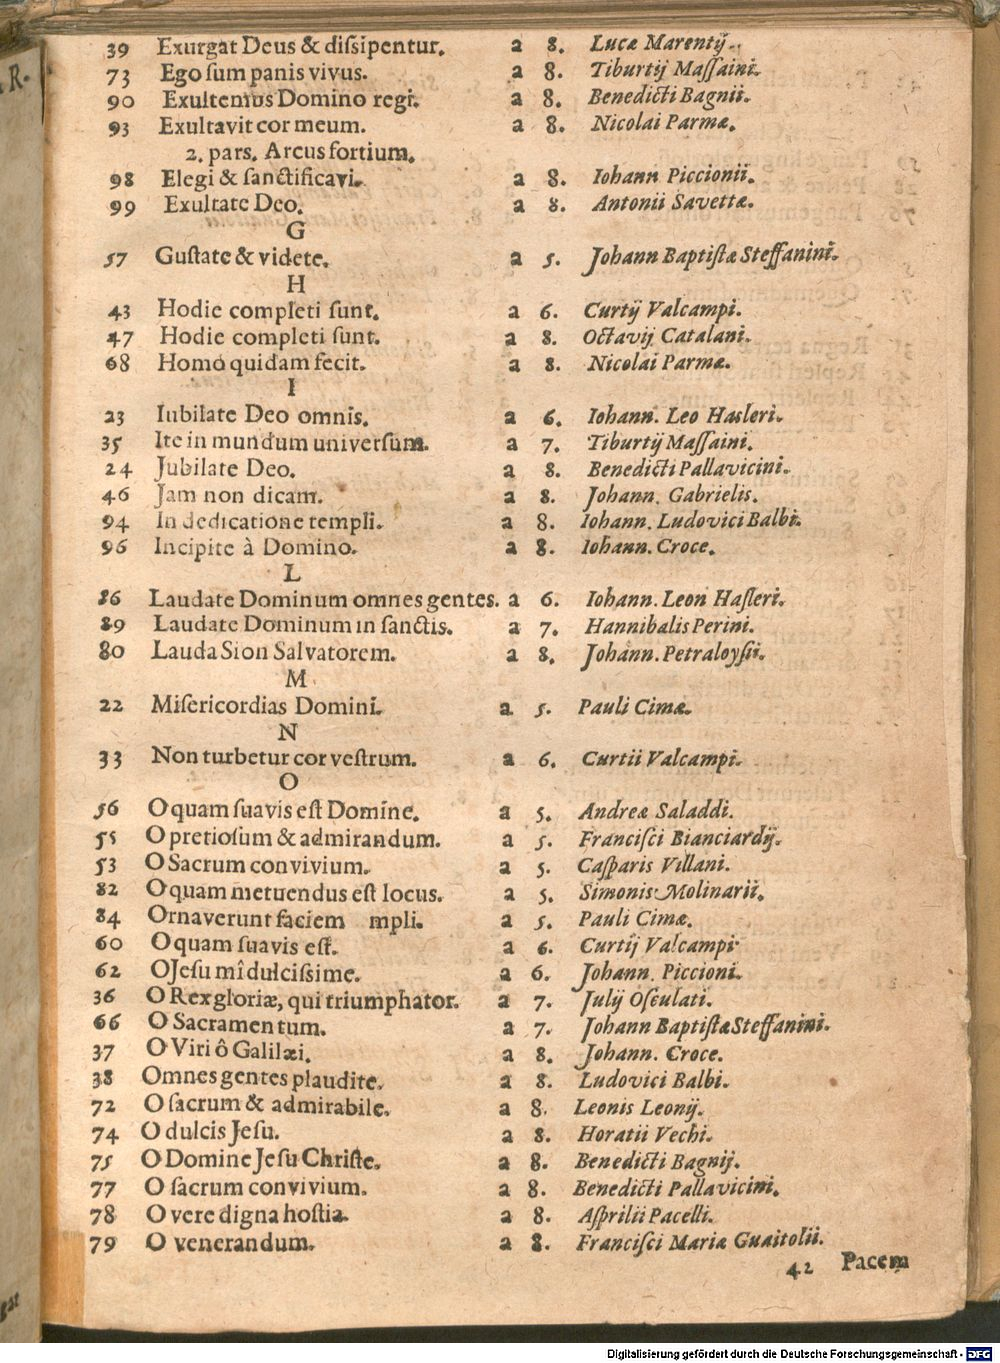 39 Exurgat Deus & dissipentur. a 8. Lucæ Marentij.
73 Ego sum panis vivus. a 8. Tiburtij Massaini.
90 Exultemus Domino regi. a 8. Benedicti Bagnii.
93 Exultavit cor meum. a 8. Nicolai Parmæ.
2. pars. Arcus fortium.
98 Elegi & sanctificavi. a 8. Iohann Piccionii.
99 Exultate Deo. a 8. Antonii Savettæ.
G
57 Gustate & videte. a 5. Johann Baptistæ Steffanini.
H
43 Hodie completi sunt. a 6. Curtij Valcampi.
47 Hodie completi sunt. a 8. Octavij Catalani.
68 Homo quidam fecit. a 8. Nicolai Parmæ.
I
23 Iubilate Deo omnis. a 6. Iohann. Leo Hasleri.
35 Ite in mundum universum. a 7. Tiburtij Massaini.
24 Jubilate Deo. a 8. Benedicti Pallavicini.
46 Jam non dicam. a 8. Johann. Gabrielis.
94 In dedicatione templi. a 8. Iohann. Ludovici Balbi.
96 Incipite à Domino. a 8. Iohann. Croce.
L
86 Laudate Dominum omnes gentes. a 6. Iohann. Leon Hasleri.
89 Laudate Dominum in sanctis. a 7. Hannibalis Perini.
80 Lauda Sion Salvatorem. a 8. Johann. Petraloysii.
M
22 Misericordias Domini. a 5. Pauli Cimæ.
N
33 Non turbetur cor vestrum. a 6. Curtii Valcampi.
O
56 O quam suavis est Domine. a 5. Andreæ Saladdi.
55 O pretiosum & admirandum. a 5. Francisci Bianciardij.
53 O Sacrum convivium. a 5. Casparis Villani.
82 O quam metuendus est locus. a 5. Simonis Molinarii.
84 Ornaverunt faciem mpli. a 5. Pauli Cimæ.
60 O quam suavis est. a 6. Curtij Valcampi.
62 O Jesu mî dulcissime. a 6. Johann. Piccioni.
36 O Rex gloriæ, qui triumphator. a 7. Julij Osculati.
66 O Sacramentum. a 7. Johann Baptistæ Steffanini.
37 O Viri ô Galilæi. a 8. Johann. Croce.
38 Omnes gentes plaudite. a 8. Ludovici Balbi.
72 O sacrum & admirabile. a 8. Leonis Leonij.
74 O dulcis Jesu. a 8. Horatii Vechi.
75 O Domine Jesu Christe. a 8. Benedicti Bagnij.
77 O sacrum convivium. a 8. Benedicti Pallavicini.
78 O vere digna hostia. a 8. Asprilii Pacelli.
79 O venerandum. a 8. Francisci Mariæ Guaitolii.
42 Pacem
Digitalisierung gefördert durch die Deutsche Forschungsgemeinschaft - DFG